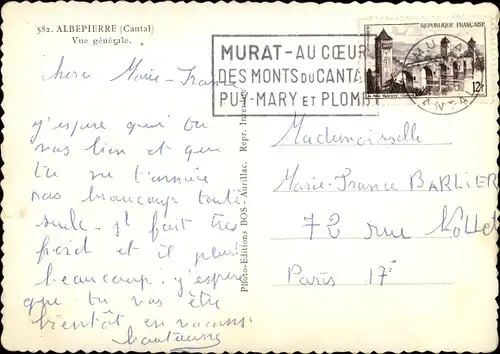 582. ALBEPIERRE (Cantal)
Vue générale.
MURAT - AU CŒUR
DES MONTS DU CANTAL
PUY-MARY ET PLOMB
REPUBLIQUE FRANÇAISE
12F
MURAT
CANTAL
chère Marie-France
j'espère que tu
vas bien et que
tu ne t'ennuie
pas beaucoup toute
seule. Il fait très
froid et il pleut
beaucoup. j'espère
que tu vas être
bientôt en vacances
Photo-Editions BOS - Aurillac. Repr. Interdite
Mademoiselle
Marie-France BARLIER
72 rue Nollet
Paris 17e